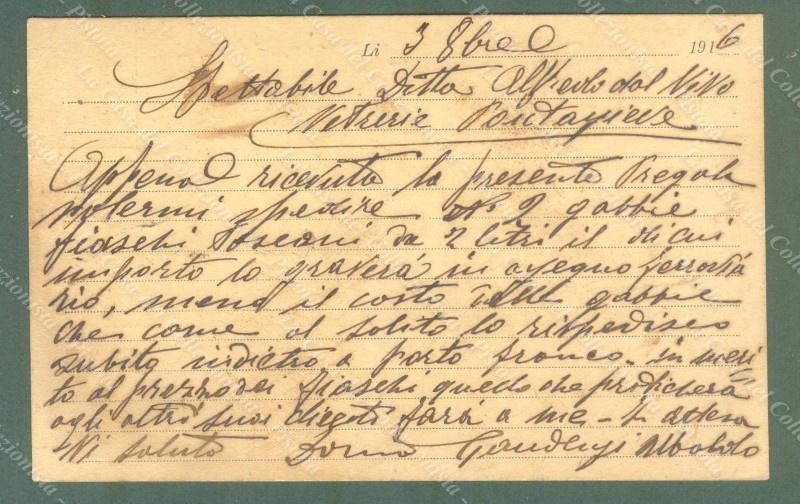 Li 3 8bre 1916
Spettabile Ditta Alfredo dal Vivo
Vetrerie Pontassieve
Appena ricevuta la presente Pregola
volermi spedire No 2 gabbie
fiaschi Toscani da 2 litri il di cui
importo lo graverà in assegno ferrovia
rio, meno il costo delle gabbie
che come al solito lo rispedisco
subito indietro a porto franco. in meri
to al prezzo dei fiaschi quello che praticherà
agli altri suoi clienti farà a me - In attesa
Vi saluto Gaudenzi